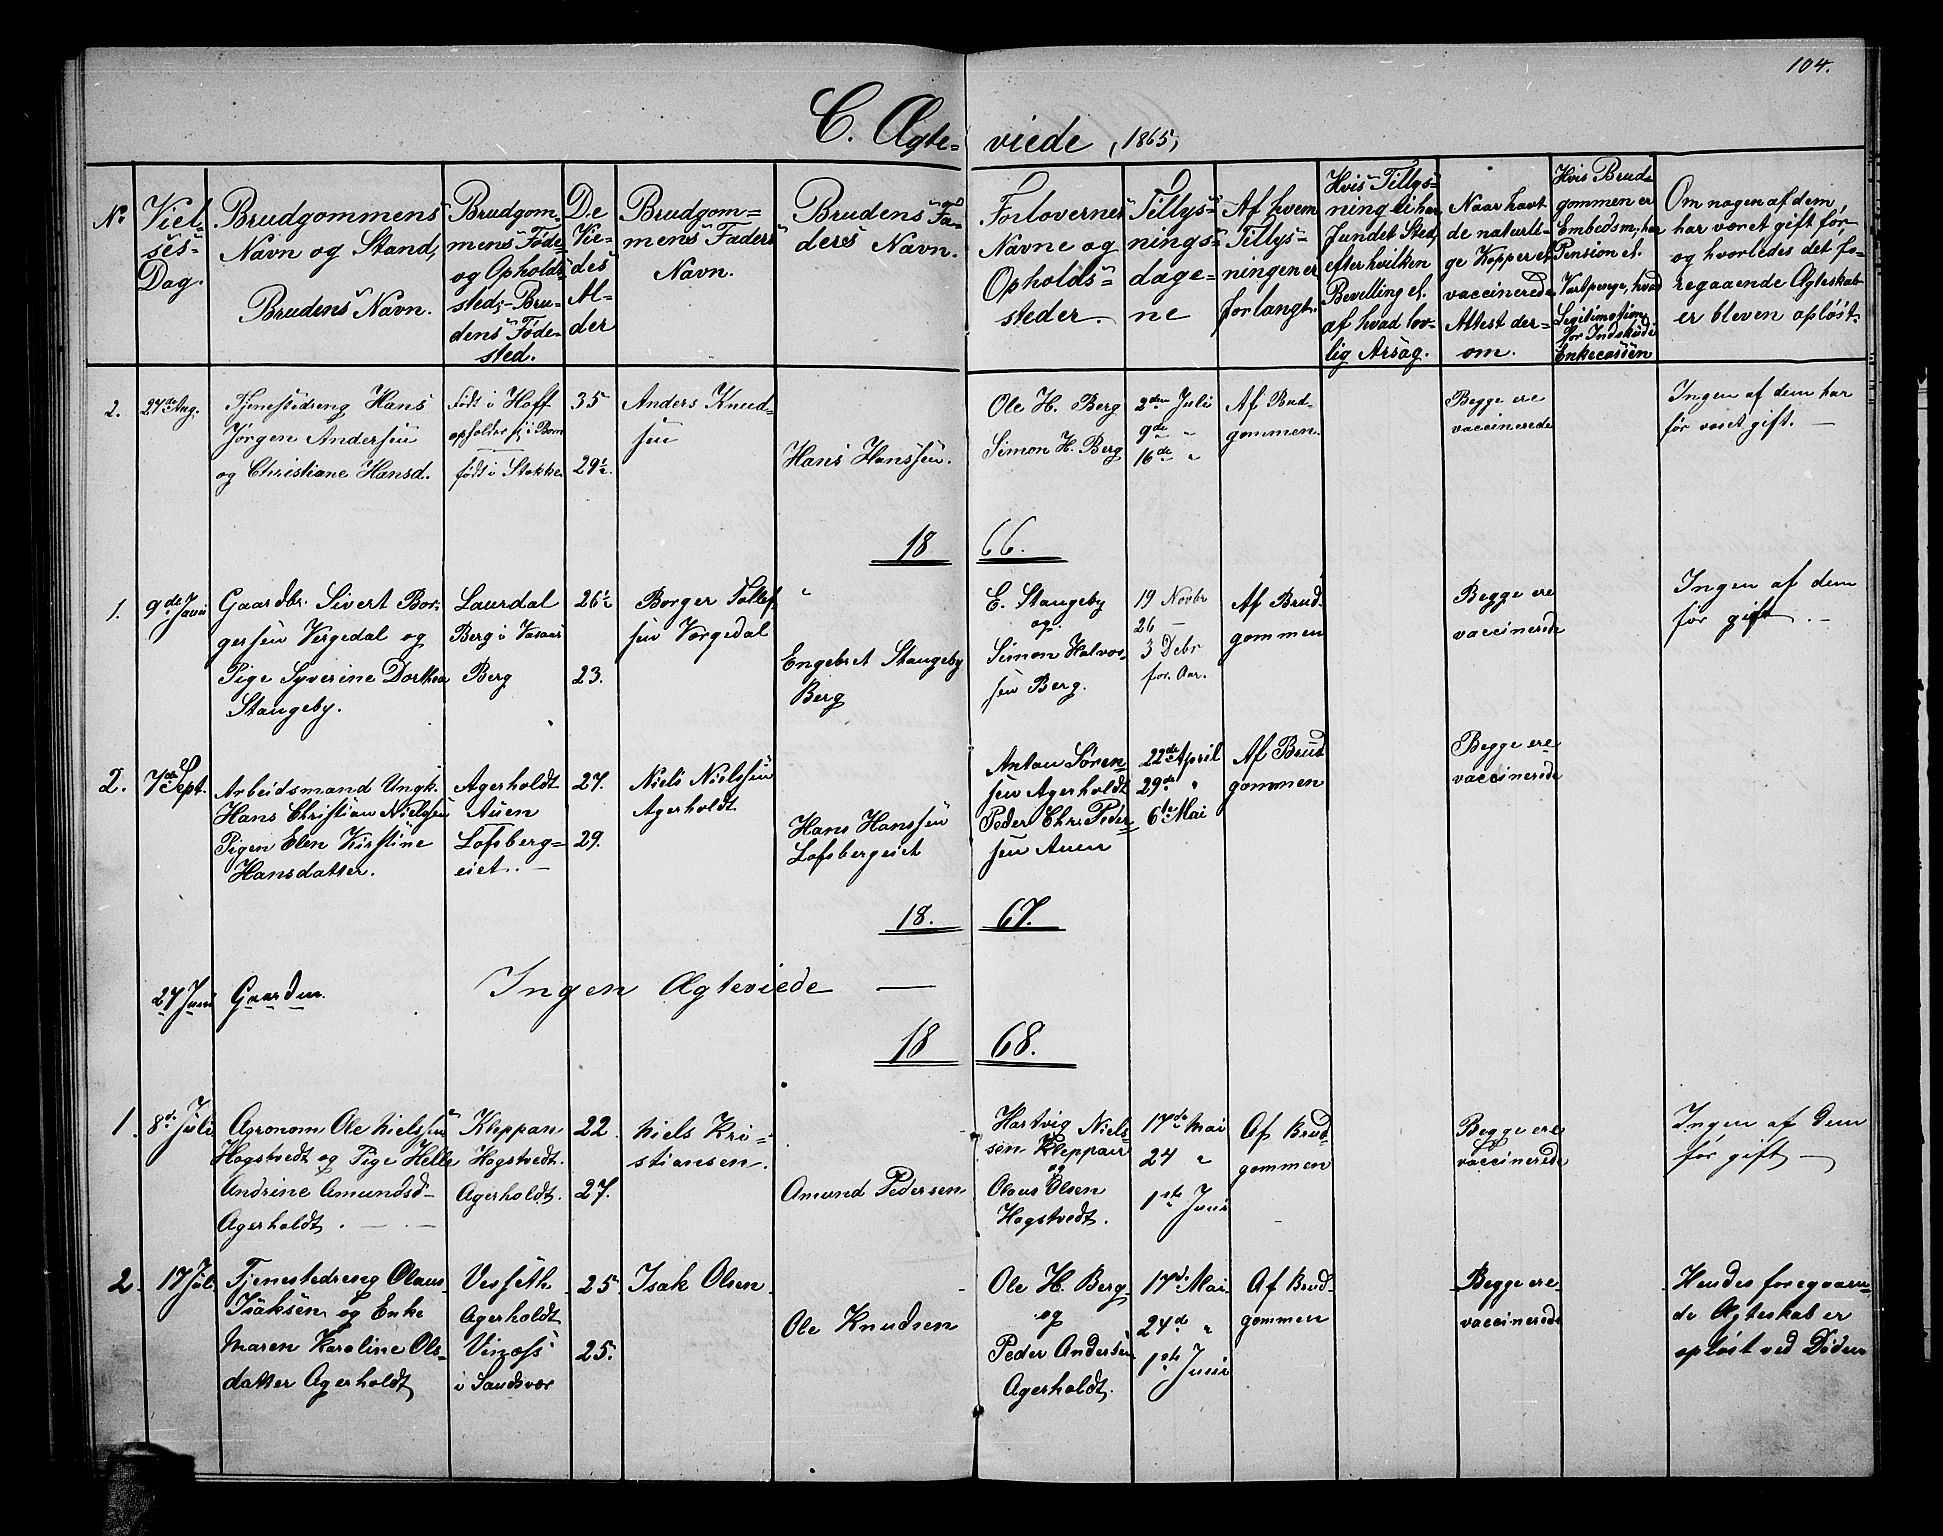 104.
C. Ægteviede, 1865,
No
Viel-
ses-
Dag.
Brudgommens
Navn og Stand,
Brudens Navn.
Brudgom-
mens Føde
og Opholds
sted,- Bru-
dens Føde-
sted.
De
Vie-
des
Al-
der
Brudgom=
mens Faders
Navn.
Brudens Fa-
ders Navn.
Forlovernes
Navne og
Opholds-
steder.
Tillys-
nings-
dage-
ne
Af hvem
Tillys-
ningen er
forlangt.
Hvis Tillys-
ning ei har
fundet Sted,
efter hvilken
Bevilling el.
af hvad lov-
lig Arsag.
Naar havt
de naturli-
ge Kopper el.
vaccinerede
Attest der-
om.
Hvis Brud-
gommen er
Embedsm., har
Pension el.
Vartpenge, hvad
Legitimation
for Indskud i
Enkecassen
Om nogen af dem,
har været gift før,
og hvorledes det fo-
regaaende Ægteskab
er bleven opløst.
2.
24de Aug.
Tjenestedreng Hans
Jørgen Andersen
og Christiane Hansd.
født i Hoff
opholder sig i Bom
født i Stokke
35
29½
Anders Knud-
sen
Hans Hanssen.
Ole H. Berg
Simon H. Berg
2den Juli
9de "
16de "
Af Bud-
gommen.
Begge ere
vaccinerede
Ingen af dem har
før været gift. —
18 66.
1.
9de Juni
Gaardbr. Sivert Bor-
gersen Vergedal og
Pige Syverine Dorthea
Stangeby.
Laurdal
Berg i Vasaas
Berg
26½
23.
Borger Tollef
sen Vorgedal
"
Engebret Stangeby
Berg
E. Stangeby
og
Simon Halvor-
sen Berg.
19 Novbr
26 —
3 Debr
for. Aar.
Af Brud-
gommen
Begge ere
vaccinerede
Ingen af dem
før gift. —
2.
7de Sept.
Arbeidsmand Ungk.
Hans Christian Nielsen
Pigen Elen Kirstine
Hansdatter.
Agerholdt
Auen
Lofsberg-
eiet. —
27.
29.
Niels Nielssen
Agerholdt.
Hans Hanssen
Lofsbergeiet
Anton Søren-
sen Agerholdt
Peder Chr. Peder-
sen Auen
22de April
29de "
6te Mai
Af Brud
gommen
Begge ere
vaccinerede
18. 67.
27 Juni
Gaarden.
Ingen Ægteviede —
18 68.
1.
8de Juli
Agronom Ole Nielssen
Hogstvedt og Pige Helle
Andrine Amundsd-
Agerholdt. — —
Kleppan
Hogstvedt.
Agerholdt.
22.
27.
Niels Kri-
stiansen.
Amund Pedersen
Hartvig Niels-
sen Kleppan
og
Olaus Olsen
Hogstvedt.
17de Mai
24 "
1ste Juni
Af Brud-
gommen
Begge ere
vaccinerede
Ingen af dem
før gift —
2.
17 Juli
Tjenestedreng Olaus
Isaksen og Enke
Maren Karoline Ols-
datter Agerholdt
Vesfeth
Agerholdt
i Sandsvær
25
25.
Isak Olsen
Ole Knudsen
Ole H. Berg
og
Peder Andersen
Agerholdt.
17de Mai
24de "
1ste Juni
Af Brud-
gommen
Begge ere
vaccinerede
Hendes foregaaen-
de Ægteskab er
opløst ved Døden